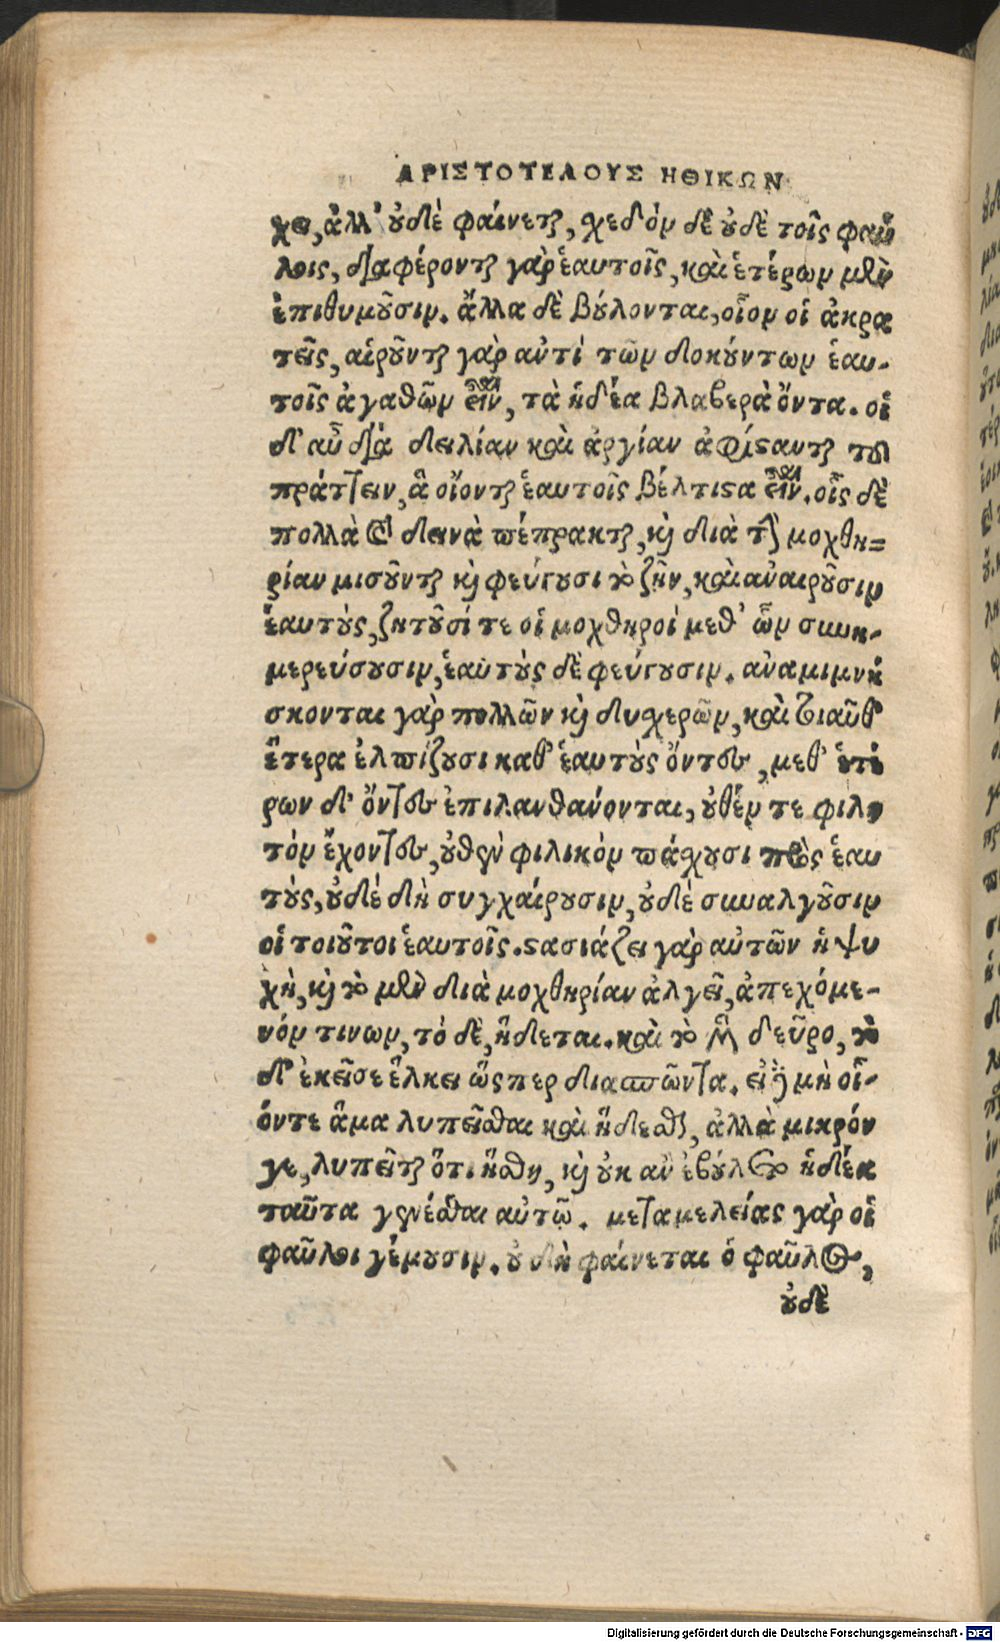 ΑΡΙΣΤΟΤΕΛΟΥΣ ΗΘΙΚΩΝ
χει, ἀλλ' οὐδὲ φαίνεται, σχεδὸν δὲ οὐδὲ τοῖς φαύ
λοις, διαφέρονται γὰρ ἑαυτοῖς, καὶ ἑτέρων μὲν
ἐπιθυμοῦσιν. ἄλλα δὲ βούλονται, οἷον οἱ ἀκρα
τεῖς, αἱροῦνται γὰρ αὐτὶ τῶν δοκούντων ἑαυ-
τοῖς ἀγαθῶν εἶναι, τὰ ἡδέα βλαβερὰ ὄντα. οἱ
δ' αὖ διὰ δειλίαν καὶ ἀργίαν ἀφίστανται τοῦ
πράττειν, ἃ οἴονται ἑαυτοῖς βέλτιστα εἶναι. οἷς δὲ
πολλὰ καὶ δεινὰ πέπρακται, καὶ διὰ τὴν μοχθη=
ρίαν μισοῦνται καὶ φεύγουσι τὸ ζῆν, καὶ ἀναιροῦσιν
ἑαυτούς, ζητοῦσί τε οἱ μοχθηροὶ μεθ' ὧν συνη-
μερεύσουσιν, ἑαυτοὺς δὲ φεύγουσιν. ἀναμιμνή
σκονται γὰρ πολλῶν καὶ δυσχερῶν, καὶ τοιαῦθ'
ἕτερα ἐλπίζουσι καθ' ἑαυτοὺς ὄντες, μεθ' ἑτέ
ρων δ' ὄντες ἐπιλανθάνονται, οὐθέν τε φιλη
τὸν ἔχοντες, οὐθὲν φιλικὸν πάσχουσι πρὸς ἑαυ
τούς, οὐδὲ δὴ συγχαίρουσιν, οὐδὲ συναλγοῦσιν
οἱ τοιοῦτοι ἑαυτοῖς. στασιάζει γὰρ αὐτῶν ἡ ψυ
χή, καὶ τὸ μὲν διὰ μοχθηρίαν ἀλγεῖ, ἀπεχόμε-
νόν τινων, τὸ δὲ, ἥδεται. καὶ τὸ μὲν δεῦρο, τὸ
δ' ἐκεῖσε ἕλκει ὥσπερ διασπῶντα. εἰ δὲ μὴ οἷ-
όντε ἅμα λυπεῖσθαι καὶ ἥδεσθαι, ἀλλὰ μικρόν
γε, λυπεῖται ὅτι ἥσθη, καὶ οὐκ ἂν ἐβούλετο ἡδέα
ταῦτα γενέσθαι αὐτῷ. μεταμελείας γὰρ οἱ
φαῦλοι γέμουσιν. οὐ δὴ φαίνεται ὁ φαῦλος,
οὐδὲ
Digitalisierung gefördert durch die Deutsche Forschungsgemeinschaft - DFG